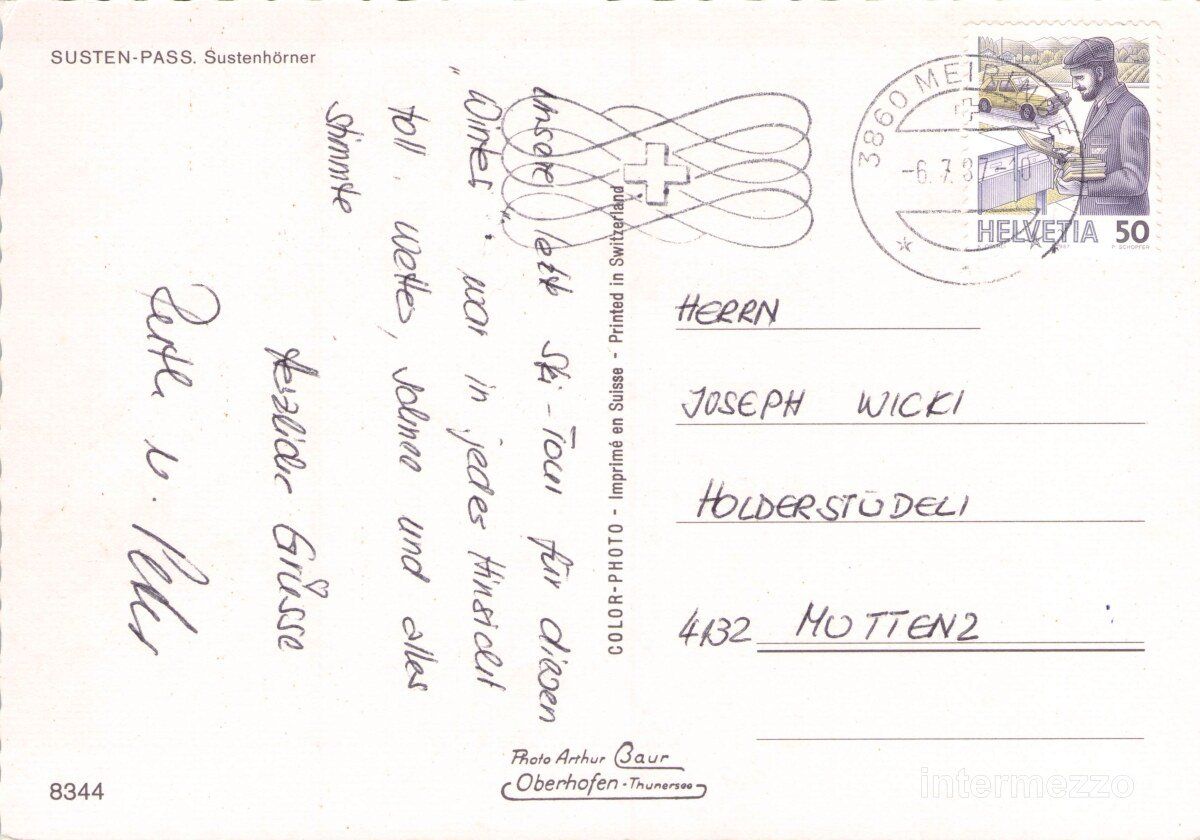 SUSTEN-PASS. Sustenhörner
unsere letzte Ski-Tour für diesen
"Winter" war in jedes Hinsicht
toll. Wetter, Schnee und alles
stimmte
Herzliche Grüsse
u. Peter
COLOR-PHOTO - Imprimé en Suisse - Printed in Switzerland
3860 MEIRINGEN
-6.7.87-10
HELVETIA 50
P. SCHOPFER
HERRN
JOSEPH WICKI
HOLDERSTÜDELI
4132 MUTTENZ
Photo Arthur Baur
Oberhofen - Thunersee
8344
intermezzo